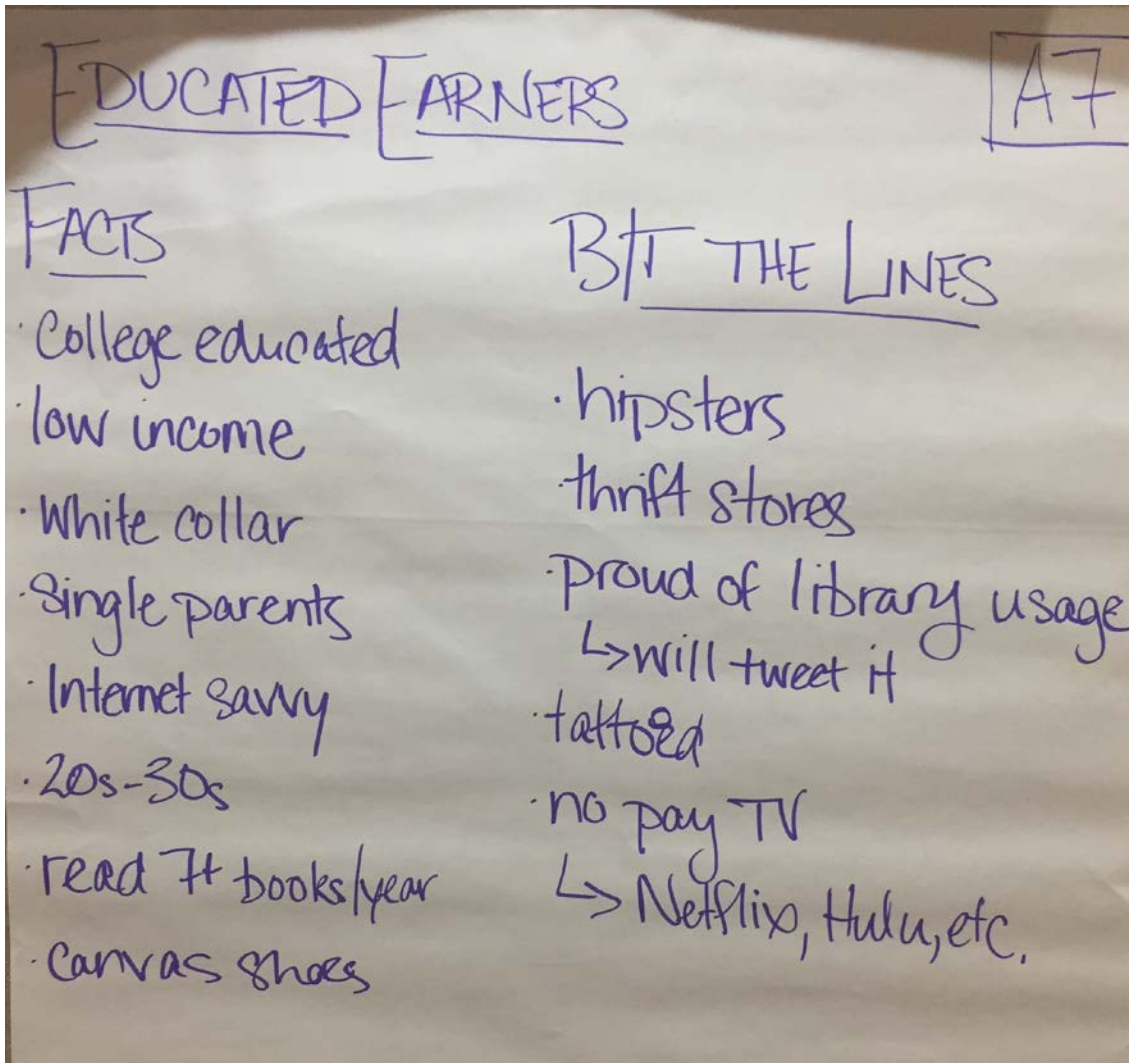 EDUCATED EARNERS
A7
FACTS
· College educated
· low income
· White collar
· Single parents
· Internet savvy
· 20s-30s
· read 7+ books/year
· canvas shoes
B/T THE LINES
· hipsters
· thrift stores
· proud of library usage
↳ will tweet it
· tattoed
· no pay TV
↳ Netflix, Hulu, etc.